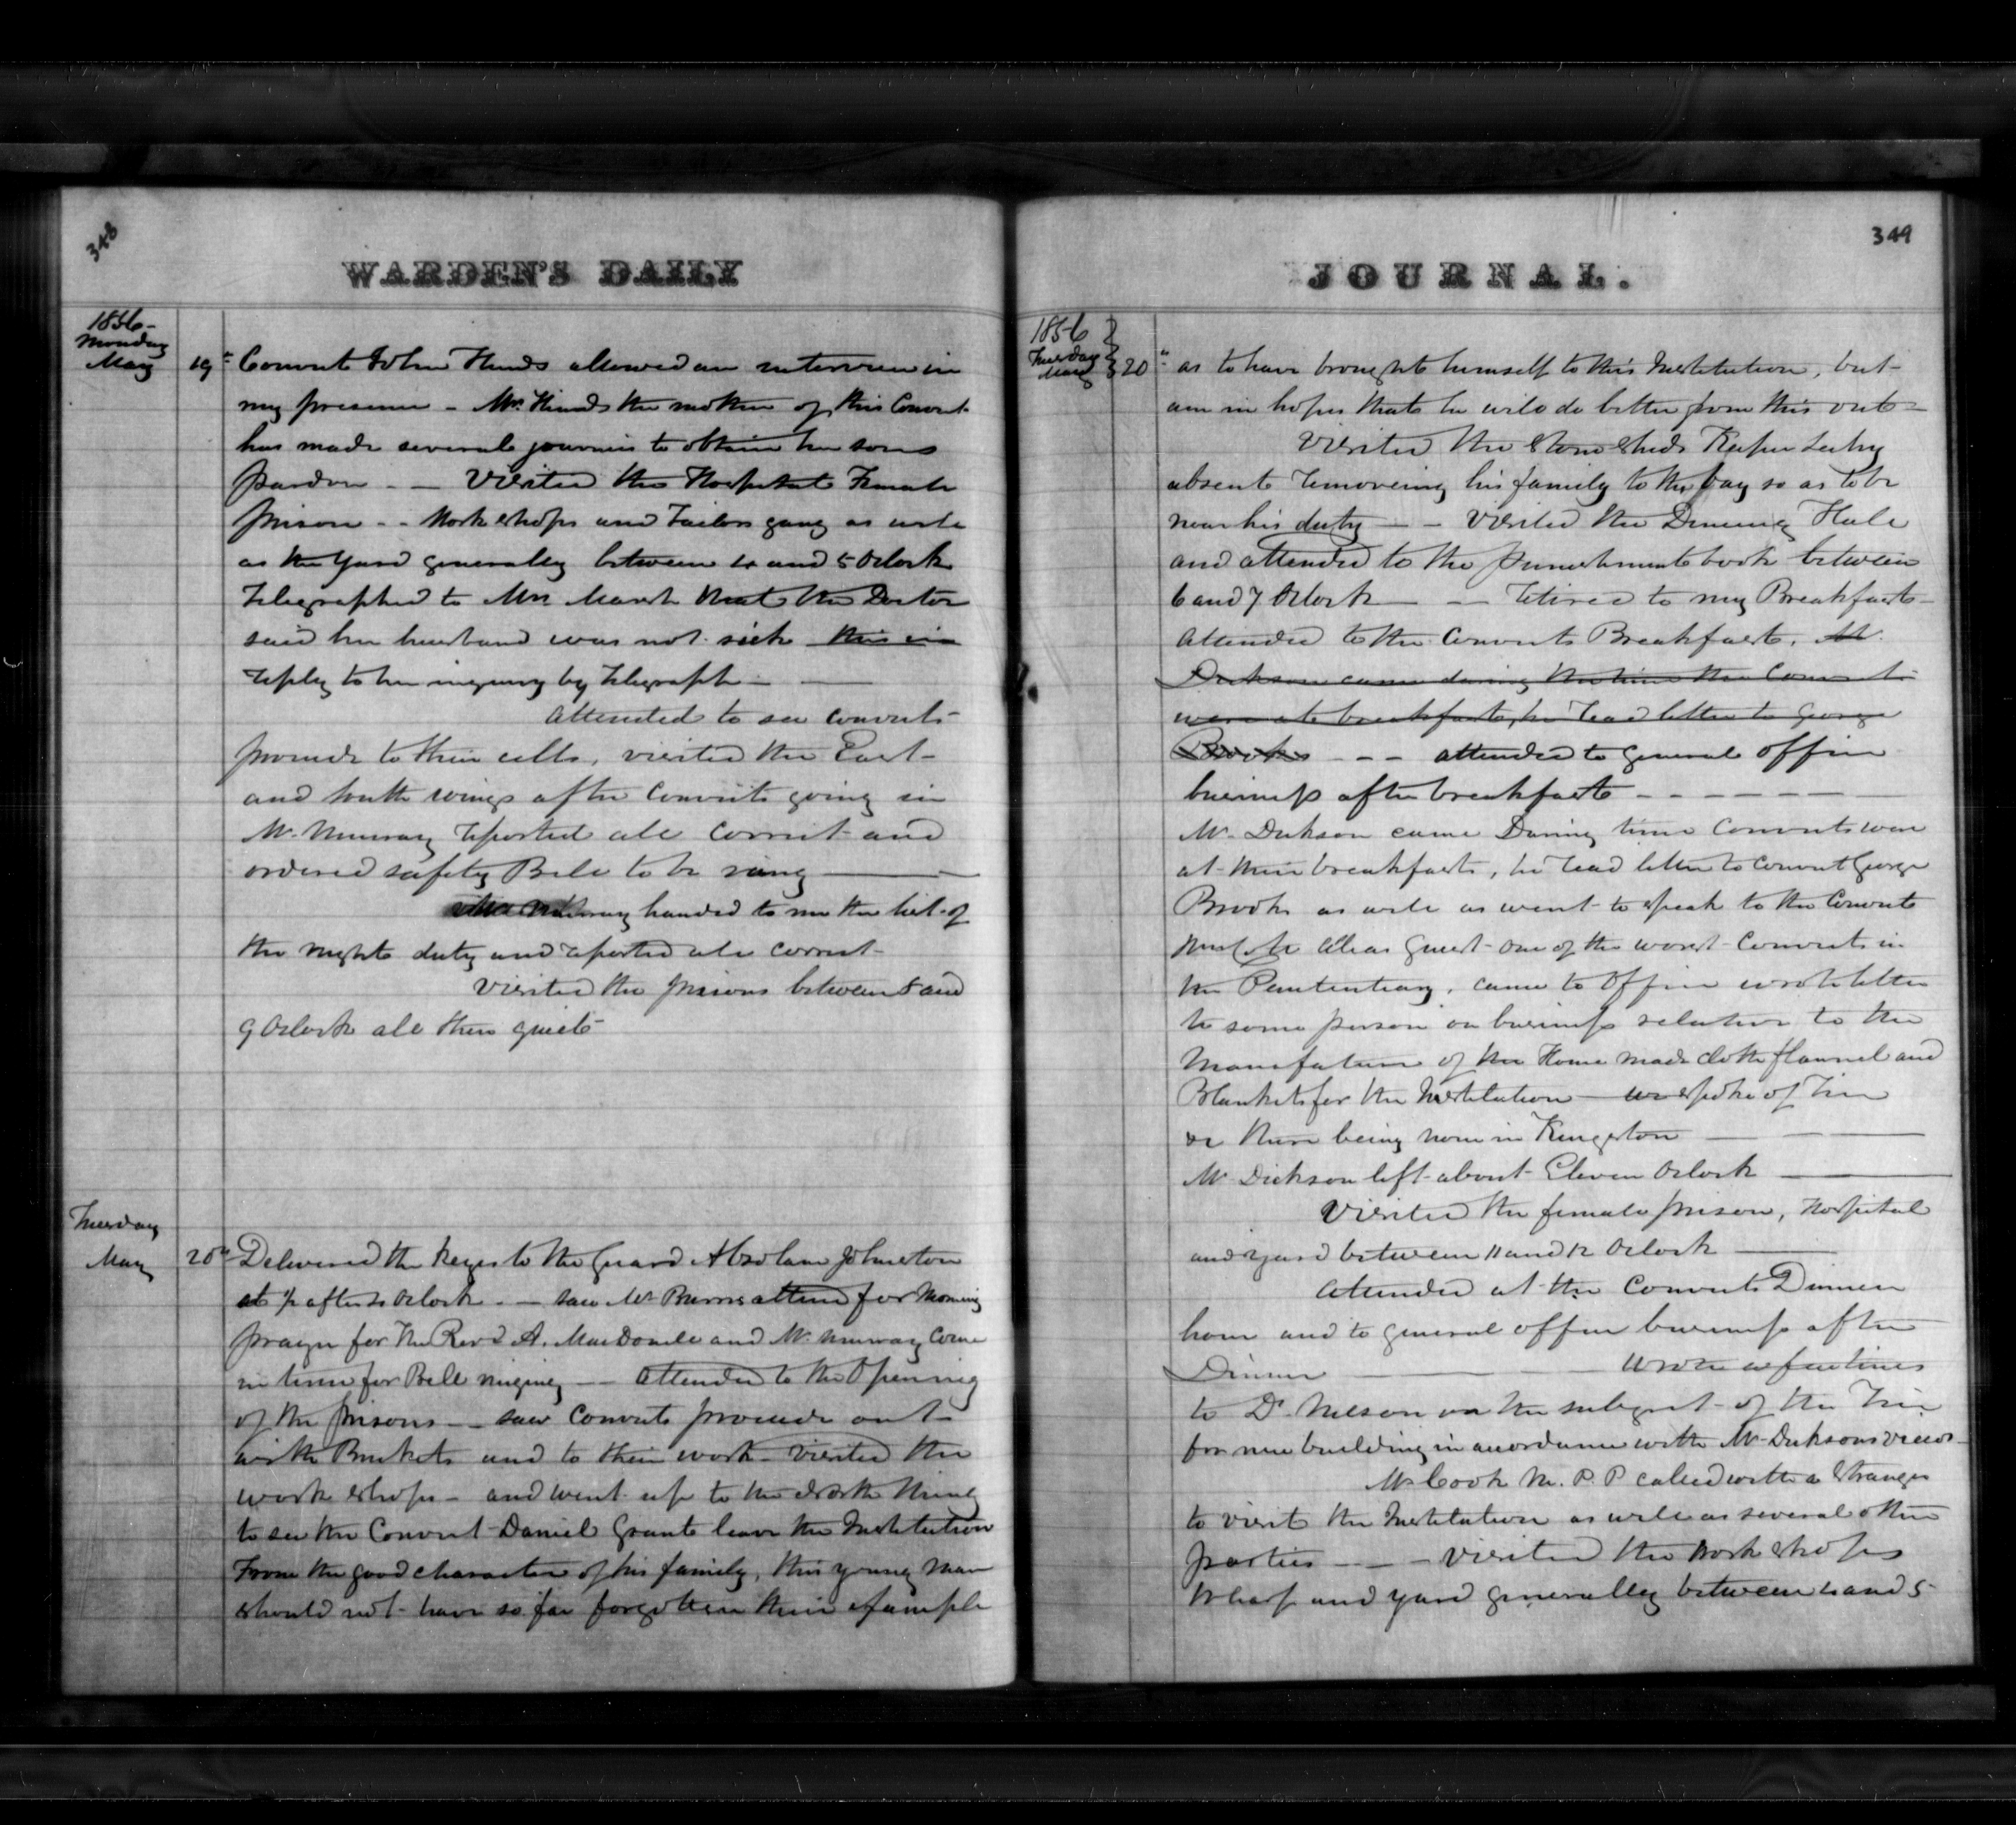 348
WARDEN'S DAILY
1856-
Monday
May 19th Convict John Hinds allowed an interview in
my presence - Mrs. Hinds the mother of this Convict
has made several journies to obtain her sons
pardon - - Visited the Hospital Female
prison - - Work shops and Tailors gang as well
as the yard generally between 4 and 5 Oclock
Telegraphed to Mrs Marsh that the Doctor
said her husband was not sick this in
reply to her inquiry by Telegraph -
Attended to see convicts
proceed to their cells, visited the East
and South wings after Convicts going in
Mr. Murray reported all correct and
ordered safety Bell to be rung
Murray handed to me the list of
the nights duty and reported all correct -
Visited the prisons between 8 and
9 Oclock all then quiet -
Tuesday
May 20th Delivered the keys to the Guard Absolam Johnston
at ½ after 4 Oclock - - saw Mr Burns attend for morning
prayer for the Revd A. MacDonell and Mr. Murray come
in time for Bell ringing - - attended to the Opening
of the prisons - - saw Convicts proceed out
with Buckets and to their work - visited the
work shops - and went up to the North
to see the Convict Daniel Grant leave the Institution
From the good character of his family, this young man
should not have so far forgotten their example
349
JOURNAL.
1856
Tuesday
May 20th as to have brought himself to this Institution, but
am in hopes that he will do better from this out -
Visited the Stone Sheds Keeper
absent removing his family to the bay so as to be
near his duty - - Visited the Dining Hall
and attended to the punishment book between
6 and 7 Oclock - - retired to my Breakfast -
Attended to the Convicts Breakfast. Mr.
Dickson came during the time the Convicts
were at breakfast, he read letter to George
Brooks - - - attended to General Office
business after breakfast - - - - - -
Mr. Dickson came During time Convicts were
at their breakfast, he read letter to Convict George
Brooks as well as went to speak to the Convict
alias Guest - one of the worst Convicts in
the Penitentiary, came to Office wrote letter
to some person on business relative to the
Manufacture of the Home made cloth flannel and
Blankets for the Institution - we spoke of Tin
or there being none in Kingston
Mr Dickson left about Eleven Oclock
Visited the female prison, Hospital
and yard between 11 and 12 Oclock
Attended at the Convicts Dinner
hour and to general office business after
Dinner - - wrote a few lines
to Dr Nelson on the subject of the Tin
for new building in accordance with Mr Dicksons views -
Mr Cook M. P. P called with a stranger
to visit the Institution as well as several other
parties - - - Visited the Work shops
Wharf and yard generally between 4 and 5